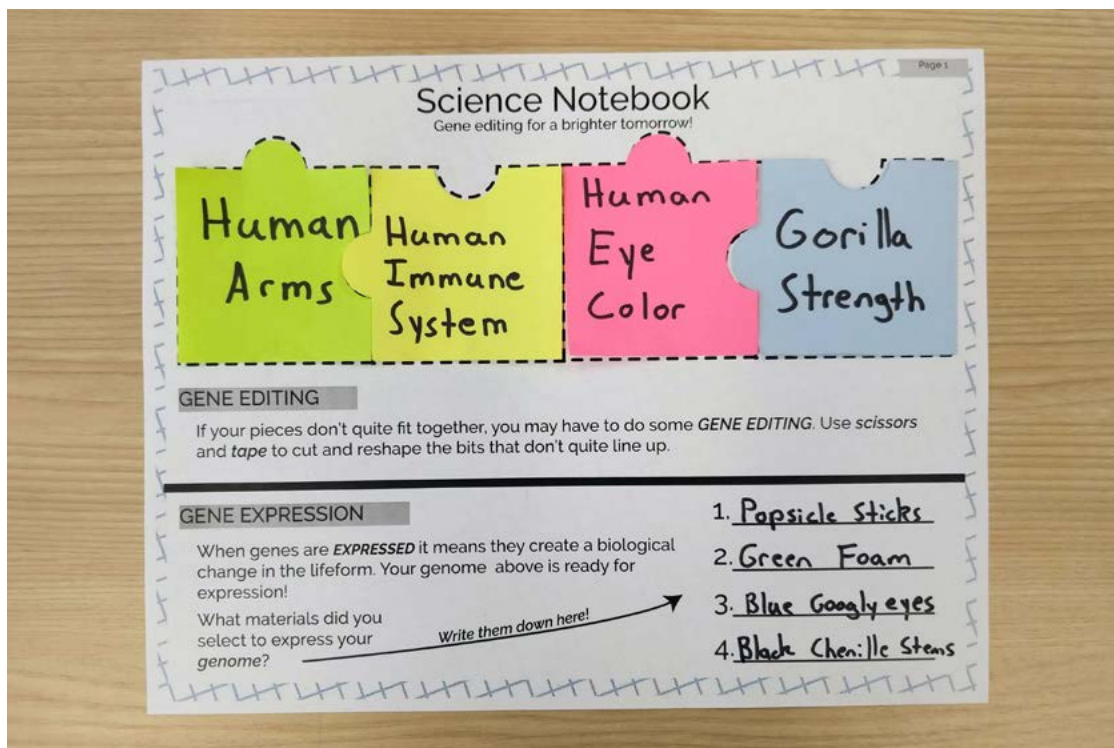 Page 1
Science Notebook
Gene editing for a brighter tomorrow!
Human
Arms
Human
Immune
System
Human
Eye
Color
Gorilla
Strength
GENE EDITING
If your pieces don't quite fit together, you may have to do some GENE EDITING. Use scissors
and tape to cut and reshape the bits that don't quite line up.
GENE EXPRESSION
When genes are EXPRESSED it means they create a biological
change in the lifeform. Your genome above is ready for
expression!
What materials did you
select to express your
genome?
Write them down here!
1. Popsicle Sticks
2. Green Foam
3. Blue Googly eyes
4. Black Chenille Stems